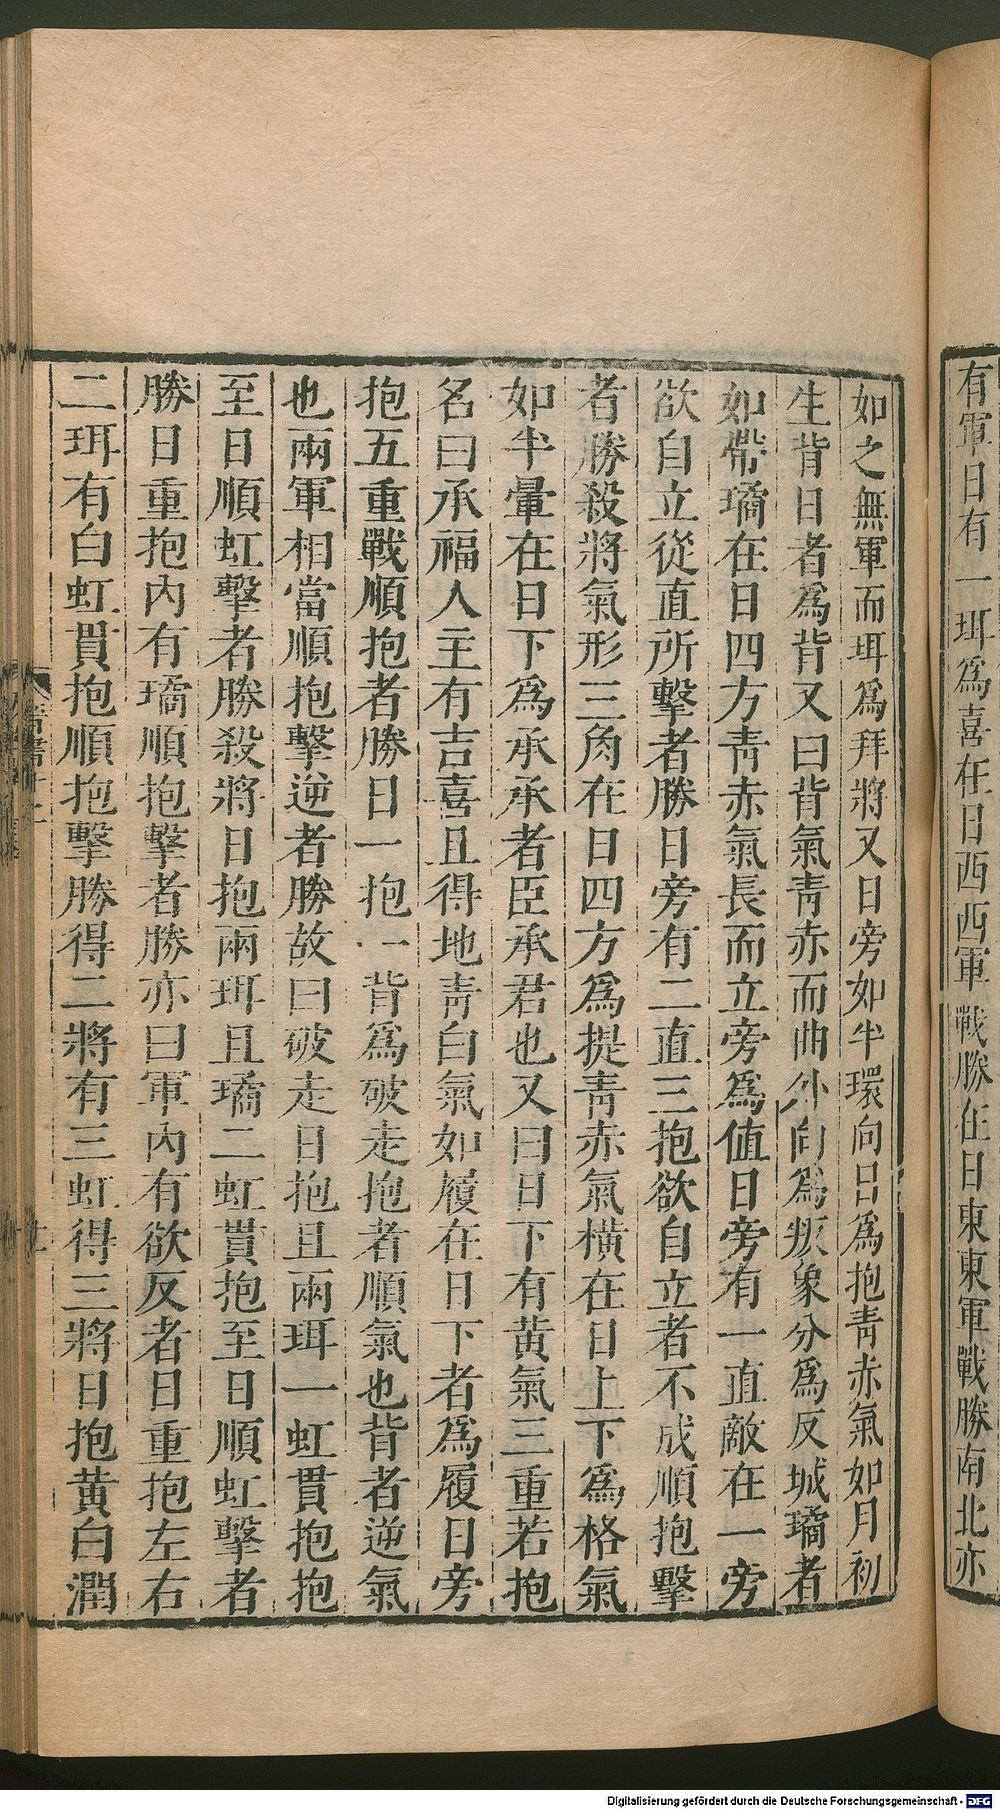 有軍日有一珥爲喜在日西西軍戰勝在日東東軍戰勝南北亦
如之無軍而珥爲拜將又日旁如半環向日爲抱靑赤氣如月初
生背日者爲背又曰背氣靑赤而曲外向爲叛象分爲反城璚者
如帶璚在日四方靑赤氣長而立旁爲值日旁有一直敵在一旁
欲自立從直所擊者勝日旁有二直三抱欲自立者不成順抱擊
者勝殺將氣形三角在日四方爲提靑赤氣橫在日上下爲格氣
如半暈在日下爲承承者臣承君也又曰日下有黄氣三重若抱
名曰承福人主有吉喜且得地靑白氣如履在日下者爲履日旁
抱五重戰順抱者勝日一抱一背爲破走抱者順氣也背者逆氣
也兩軍相當順抱擊逆者勝故曰破走日抱且兩珥一虹貫抱抱
至日順虹擊者勝殺將日抱兩珥且璚二虹貫抱至日順虹擊者
勝日重抱內有璚順抱擊者勝亦曰軍內有欲反者日重抱左右
二珥有白虹貫抱順抱擊勝得二將有三虹得三將日抱黄白潤
晉書十二
Digitalisierung gefördert durch die Deutsche Forschungsgemeinschaft - DFG